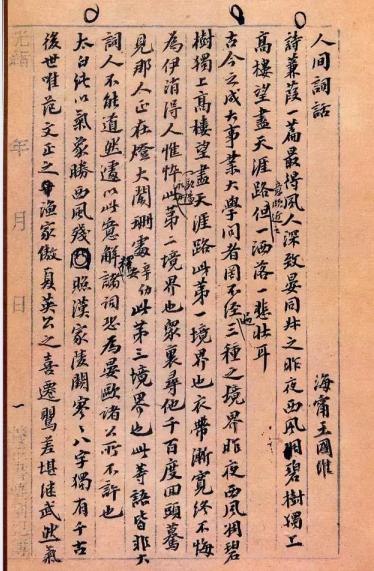 人间詞話 海甯王國維
詩蒹葭一篇最得風人深致晏同叔之昨夜西風凋碧樹獨上
高樓望盡天涯路意頗近之但一洒落一悲壯耳
古今之成大事業大學問者罔不經過三種之境界昨夜西風凋碧
樹獨上高樓望盡天涯路此第一境界也衣帶漸寬終不悔
為伊消得人憔悴此第二境界也衆裏尋他千百度回頭驀
見那人正在燈火闌珊處辛幼安此第三境界也此等語皆非大
詞人不能道然遽以此意解諸詞恐為晏歐諸公所不許也
太白純以氣象勝西風殘照漢家陵闕寥寥八字獨有千古
後世唯范文正之漁家傲夏英公之喜遷鶯差堪繼武然氣
光緒 年 月 日 一